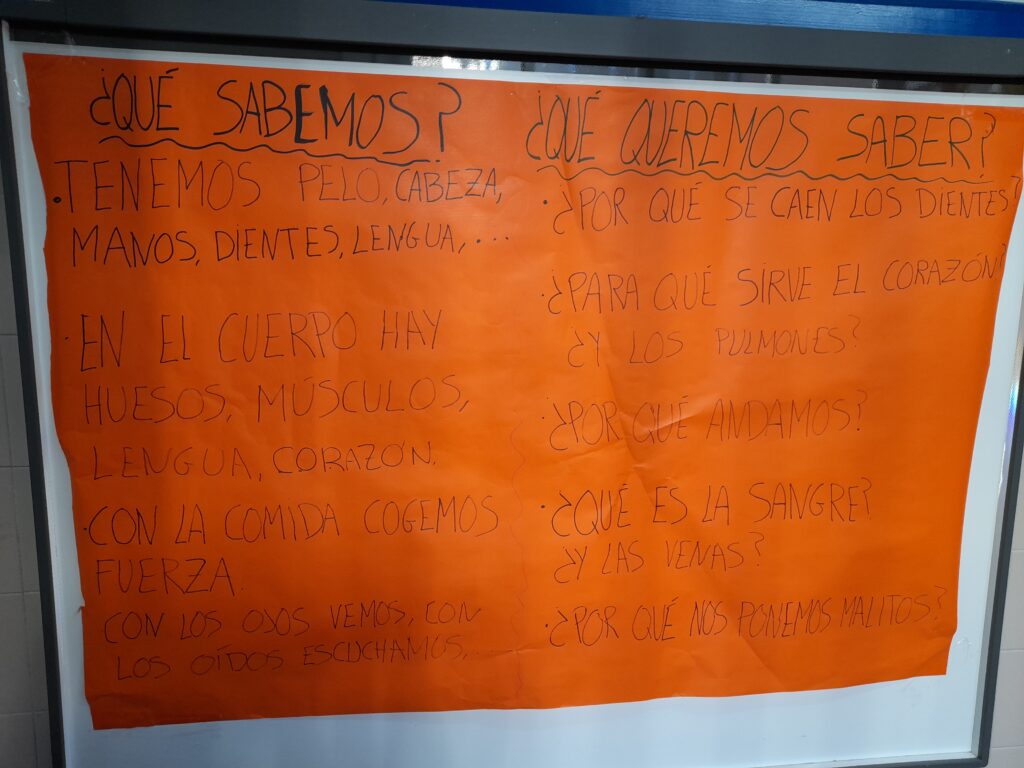 ¿QUÉ SABEMOS?
• TENEMOS PELO, CABEZA,
MANOS, DIENTES, LENGUA, ...
· EN EL CUERPO HAY
HUESOS, MÚSCULOS,
LENGUA, CORAZÓN.
· CON LA COMIDA COGEMOS
FUERZA.
CON LOS OJOS VEMOS, CON
LOS OÍDOS ESCUCHAMOS, ...
¿QUÉ QUEREMOS SABER?
· ¿POR QUÉ SE CAEN LOS DIENTES?
· ¿PARA QUÉ SIRVE EL CORAZÓN?
¿Y LOS PULMONES?
· ¿POR QUÉ ANDAMOS?
· ¿QUÉ ES LA SANGRE?
¿Y LAS VENAS?
· ¿POR QUÉ NOS PONEMOS MALITOS?